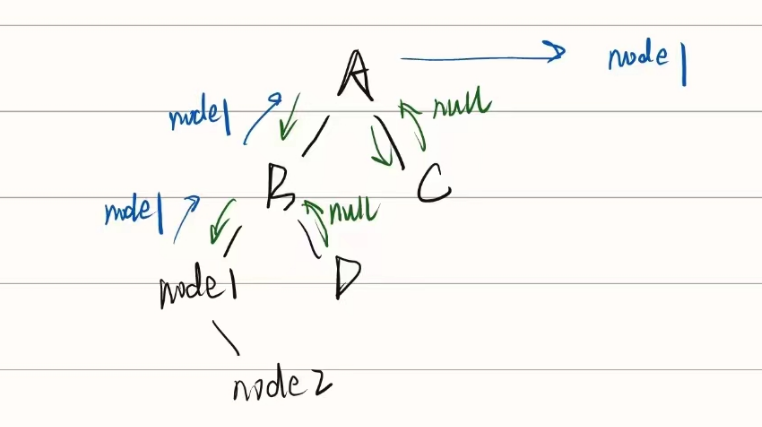 A node1
node1 null
B C
node1 null
node1 D
node2